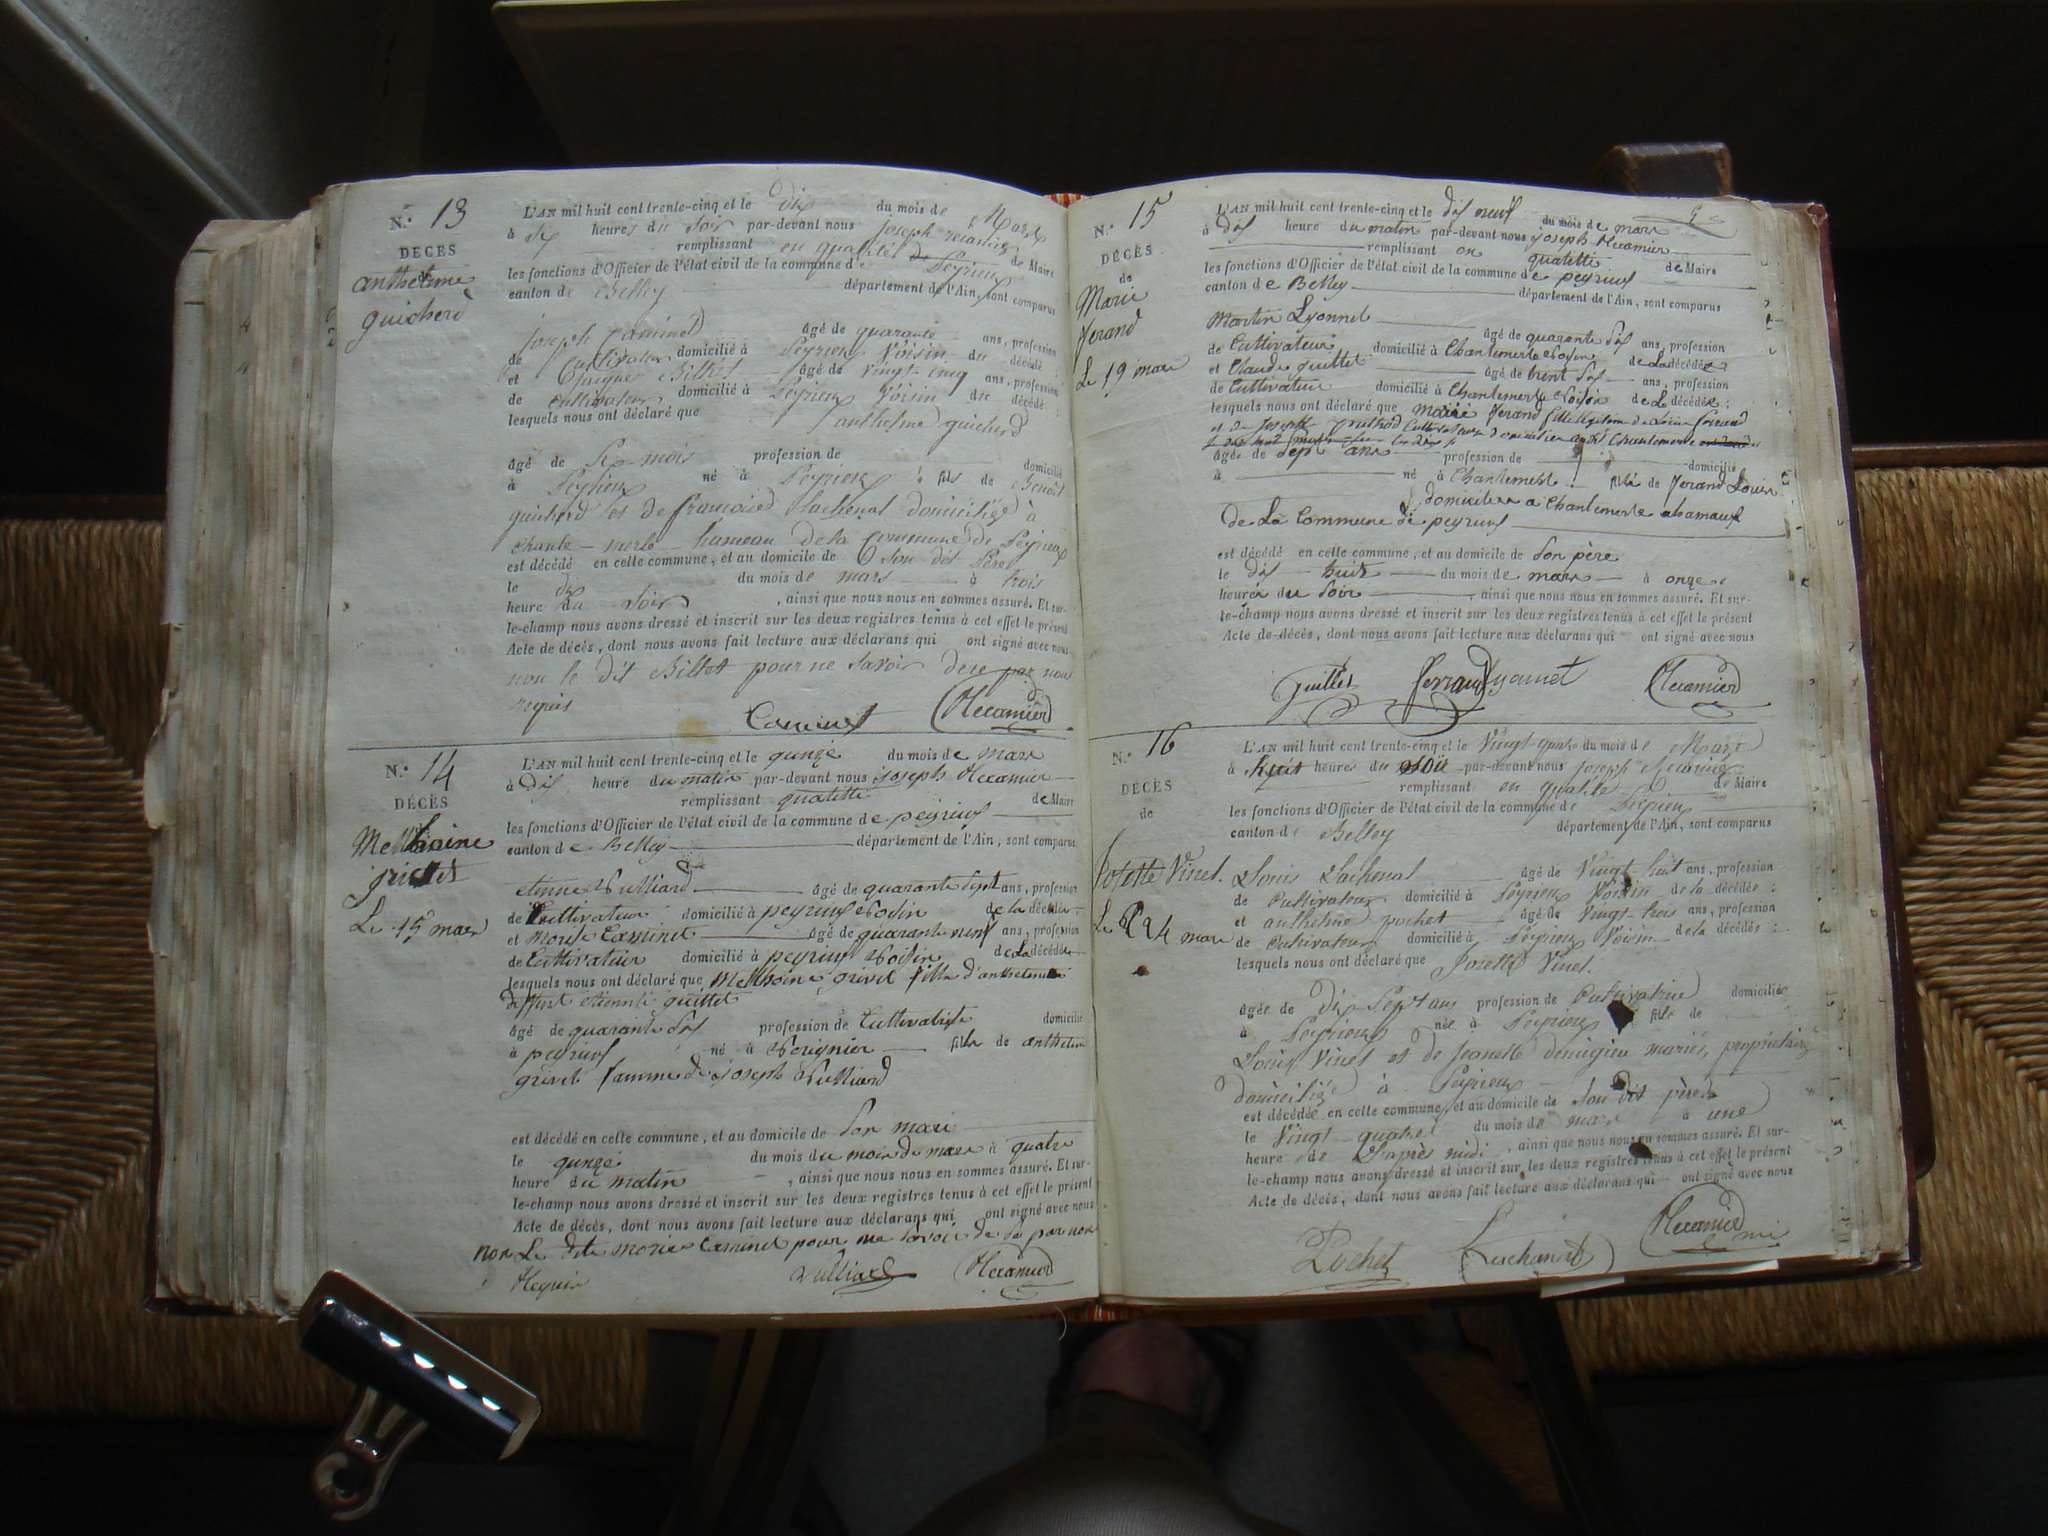 N.º 13
DÉCÈS
de
anthelme
guicherd
L'AN mil huit cent trente-cinq et le dix du mois de Mars
à six heures du soir par-devant nous joseph récamier
remplissant en qualité de Maire
les fonctions d'Officier de l'état civil de la commune de Peyrieux
canton de Belley département de l'Ain, sont comparus
joseph Caminet âgé de quarante ans, profession
de Cultivateur domicilié à Peyrieux Voisin du décédé
et Billet âgé de vingt-cinq ans, profession
de cultivateur domicilié à Peyrieux Voisin du décédé
lesquels nous ont déclaré que anthelme guicherd
âgé de mois profession de domicilié
à Peyrieux né à Peyrieux fils de Benoît
guicherd et de françoise Lachenal domiciliés à
chante-merle hameau de la Commune de Peyrieux
est décédé en cette commune, et au domicile de Son dit Père
le dix du mois de mars à trois
heure du Soir, ainsi que nous nous en sommes assuré. Et sur-
le-champ nous avons dressé et inscrit sur les deux registres tenus à cet effet le présent
Acte de décès, dont nous avons fait lecture aux déclarans qui ont signé avec nous
non le dit Billet pour ne Savoir de ce par nous
requis
Caminet Récamier
N.º 14
DÉCÈS
grivet
Le 15 mars
L'AN mil huit cent trente-cinq et le qunze du mois de mars
à dix heure du matin par-devant nous joseph Récamier
remplissant qualitté de Maire
les fonctions d'Officier de l'état civil de la commune de peyrieux
canton de Belley département de l'Ain, sont comparus
etienne Vulliard âgé de quarante Sept ans, profession
de Cultivateur domicilié à peyrieux Voisin de la décédée
et Caminet âgé de quarante neuf ans, profession
de Cultivateur domicilié à peyrieux Voisin de la décédée
lesquels nous ont déclaré que grivet fille d'anthelme
etiennete guillet
âgé de quarante Six profession de Cultivatrice domicilié
à peyrieux né à fille de anthelme
grivet famme de joseph Vulliard
est décédé en cette commune, et au domicile de Son mari
le qunze du mois du mois de mars à quatre
heure du matin, ainsi que nous nous en sommes assuré. Et sur-
le-champ nous avons dressé et inscrit sur les deux registres tenus à cet effet le présent
Acte de décès, dont nous avons fait lecture aux déclarans qui ont signé avec nous
non Le dite Caminet pour ne Savoir de Se par nous
Requis Vulliard Récamier
N.º 15
DÉCÈS
de
Marie
ferand
Le 19 mars
L'AN mil huit cent trente-cinq et le dix neuf du mois de mars
à dix heure du matin par-devant nous joseph Récamier
remplissant en qualitté de Maire
les fonctions d'Officier de l'état civil de la commune de peyrieux
canton de Belley département de l'Ain, sont comparus
Martin Lyonnet âgé de quarante Six ans, profession
de Cultivateur domicilié à Chantemerle Voisin de La décédée
et Claude guillet âgé de trent Six ans, profession
de Cultivateur domicilié à Chantemerle Voisin de La décédée :
lesquels nous ont déclaré que Marie ferand fille
et de joseph
âgée de Sept ans profession de domicilié
à né à Chantemerle fille de ferand Louis
domiciliers a Chantemerle ahamauf
de La Commune de peyrieux
est décédé en cette commune, et au domicile de Son père
le dix huit du mois de mars à onze
heures du Soir, ainsi que nous nous en sommes assuré. Et sur-
le-champ nous avons dressé et inscrit sur les deux registres tenus à cet effet le présent
Acte de décès, dont nous avons fait lecture aux déclarans qui ont signé avec nous
guillet ferrand Lyonnet Récamier
N.º 16
DÉCÈS
de
Josette Vinet.
Le 24 mars
L'AN mil huit cent trente-cinq et le Vingt quatre du mois de Mars
à huit heures du soir par-devant nous joseph Récamier
remplissant en qualité de Maire
les fonctions d'Officier de l'état civil de la commune de Peyrieux
canton de Belley département de l'Ain, sont comparus
Louis Lachenal âgé de Vingt huit ans, profession
de Cultivateur domicilié à Peyrieux Voisin de la décédée :
et anthelme pochet âgé de Vingt-trois ans, profession
de Cultivateur domicilié à Peyrieux Voisin de la décédée :
lesquels nous ont déclaré que Josette Vinet.
âgée de dix Sept ans profession de Cultivatrice domiciliée
à Peyrieux née à Peyrieux fille de
Louis Vinet et de Jeanette mariés, propriétaires
domiciliés à Peyrieux
est décédée en cette commune, et au domicile de Son dit père
le Vingt-quatre du mois de mars à une
heure de L'après midi, ainsi que nous nous en sommes assuré. Et sur-
le-champ nous avons dressé et inscrit sur les deux registres tenus à cet effet le présent
Acte de décès, dont nous avons fait lecture aux déclarans qui ont signé avec nous
Pochet Lachenal Récamier